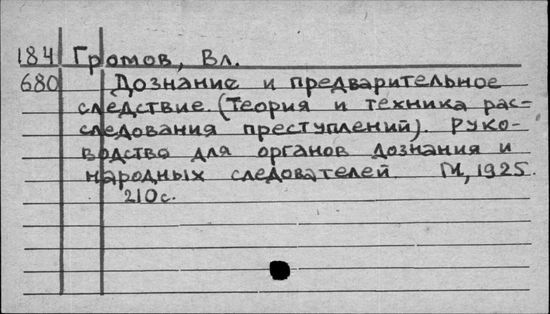 184 Громов, Вл.
680 Дознание и предварительное
следствие. (Теория и техника рас-
следования преступлений). Руко-
водство для органов дознания и
народных следователей М, 1925.
210с.